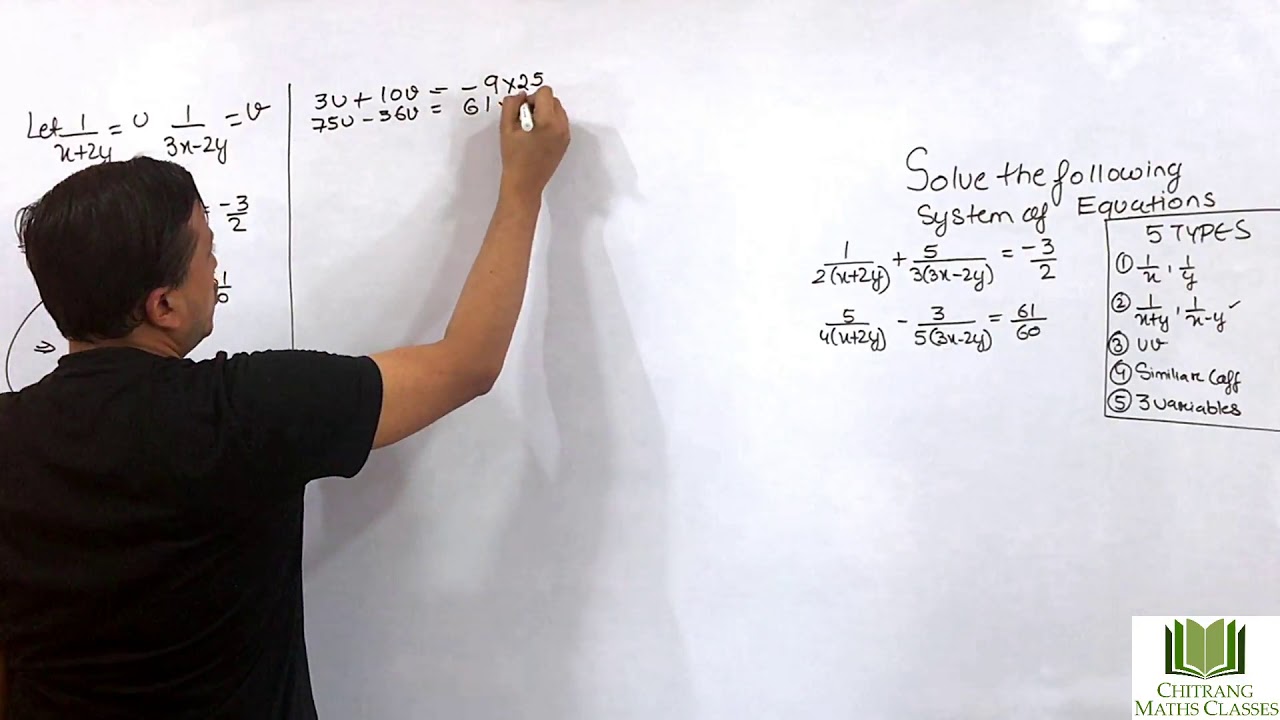 Let 1/(x+2y) = u 1/(3x-2y) = v
= -3/2
⇒
3u + 10v = -9×25
75u - 36v = 61
Solve the following
System of Equations
1/2(x+2y) + 5/3(3x-2y) = -3/2
5/4(x+2y) - 3/5(3x-2y) = 61/60
5 TYPES
① 1/x , 1/y
② 1/x+y , 1/x-y ✓
③ uv
④ Similiar Coff
⑤ 3 variables
CHITRANG
MATHS CLASSES